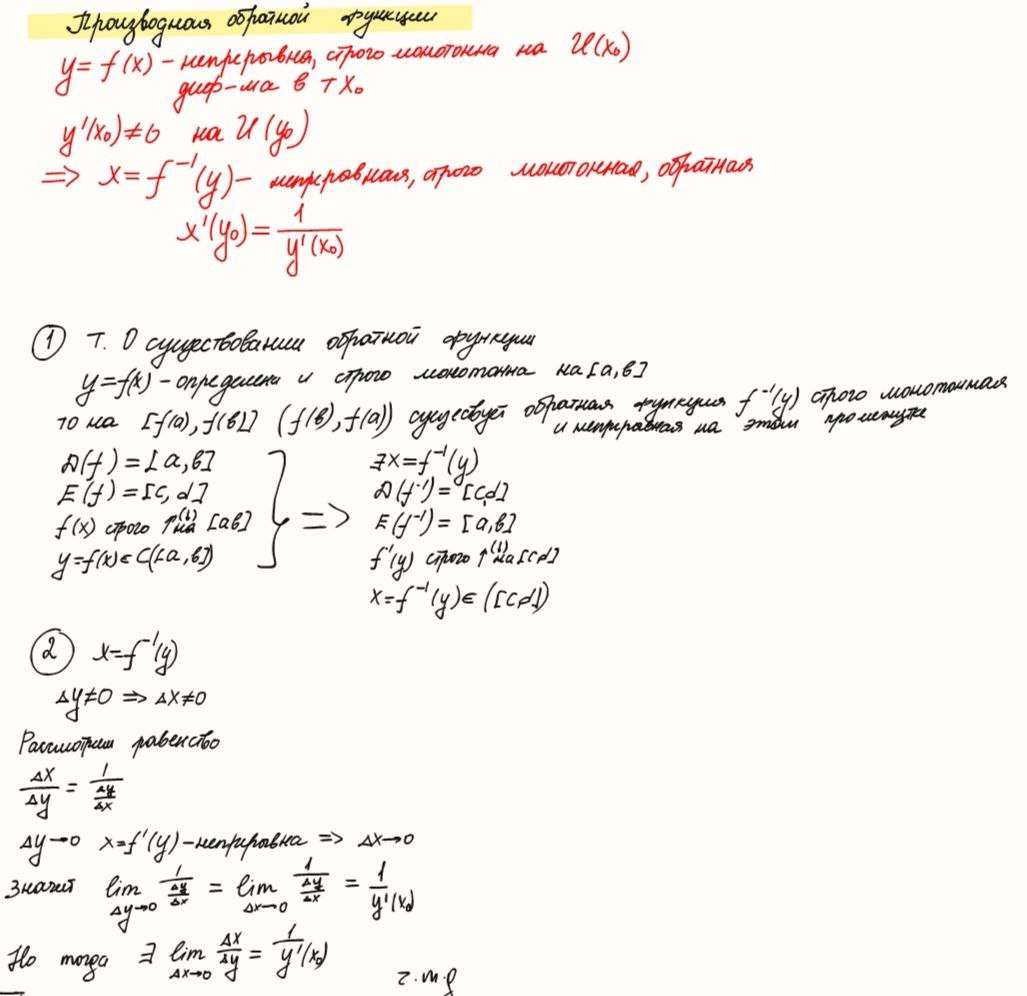 Производная обратной функции
y = f(x) – непрерывна, строго монотонна на U(x₀)
диф-ма в т x₀
y'(x₀) ≠ 0 на U(y₀)
=> x = f⁻¹(y) – непреровная, строго монотонная, обратная
x'(y₀) = 1/y'(x₀)
① Т. О существовании обратной функции
y = f(x) – определена и строго монотонна на [a, b]
то на [f(a), f(b)] (f(b), f(a)) существует обратная функция f⁻¹(y) строго монотонная
и неприровная на этом промежутке
D(f) = [a, b]
E(f) = [c, d]
f(x) строго ↑(↓) на [ab]
y = f(x) ∈ C([a, b])
=>
∃ x = f⁻¹(y)
D(f⁻¹) = [c,d]
E(f⁻¹) = [a, b]
f'(y) строго ↑(↓) на [cd]
x = f⁻¹(y) ∈ ([cd])
② x = f⁻¹(y)
Δy ≠ 0 => Δx ≠ 0
Рассмотрим равенство
Δx/Δy = 1/(Δy/Δx)
Δy → 0 x = f'(y) – неприровна => Δx → 0
Значит lim Δy→0 1/(Δy/Δx) = lim Δx→0 1/(Δy/Δx) = 1/y'(x₀)
Но тогда ∃ lim Δx→0 Δx/Δy = 1/y'(x₀)
ч.т.д